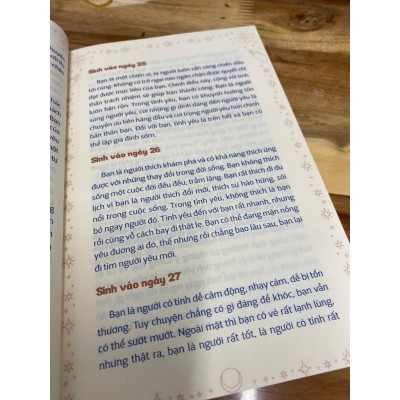 Sinh vào ngày 25
Bạn là một chiến sĩ, là người luôn sẵn sàng chiến đấu
tới cùng. Không có trở ngại nào ngăn chặn được quyết chí
đạt được mục tiêu của bạn. Chính điều này, cộng với tinh
thần trách nhiệm sẽ giúp bạn thành công. Bạn là người
luôn bận rộn. Trong tình yêu, bạn có khuynh hướng tôn
sùng người yêu, coi những gì dính dáng đến người yêu là
chuyện ưu tiên hàng đầu và coi trọng người yêu hơn chính
bản thân bạn. Đối với bạn, tình yêu là trên hết và bạn có
thể lập gia đình sớm.
Sinh vào ngày 26
Bạn là người thích khám phá và có khả năng thích ứng
được với những thay đổi trong đời sống. Bạn không thích
sống một cuộc đời đều đều, trầm lặng. Bạn rất thích du
lịch vì bạn là người thích đổi mới, thích sự hào hứng, sôi
nổi trong cuộc sống. Trong tình yêu, không thích là bạn
bỏ ngay người đó. Tình yêu đến với bạn rất nhanh, nhưng
rồi cũng vỗ cách bay đi thật lẹ. Bạn có thể đang mặn nồng
yêu đương ai đó, thế nhưng rồi chẳng bao lâu sau, bạn lại
đi tìm người yêu mới.
Sinh vào ngày 27
Bạn là người có tính dễ cảm động, nhạy cảm, dễ bị tổn
thương. Tuy chuyện chẳng có gì đáng để khóc, bạn vẫn
có thể sướt mướt. Ngoài mặt thì bạn có vẻ rất lạnh lùng,
nhưng thật ra, bạn là người rất tốt, là người có tính rất